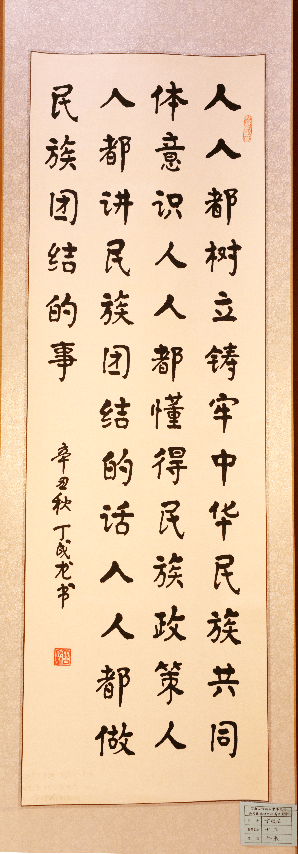 人人都树立铸牢中华民族共同
体意识人人都懂得民族政策人
人都讲民族团结的话人人都做
民族团结的事
辛丑秋丁成龙书